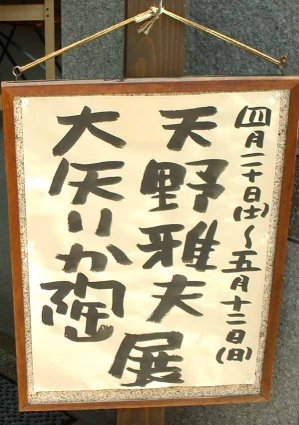 四月二十日(土)～五月十二日(日)
天野雅夫
大矢りか陶
展